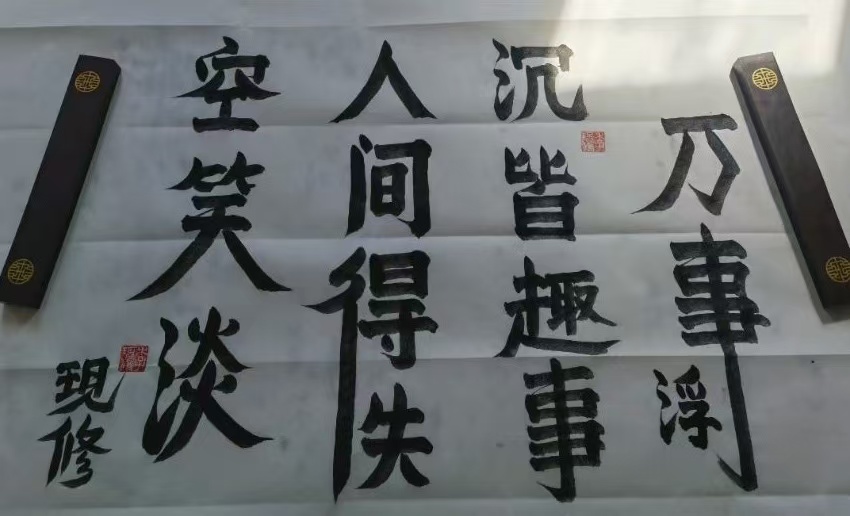 万事浮
沉皆趣事
人间得失
空笑淡
現修